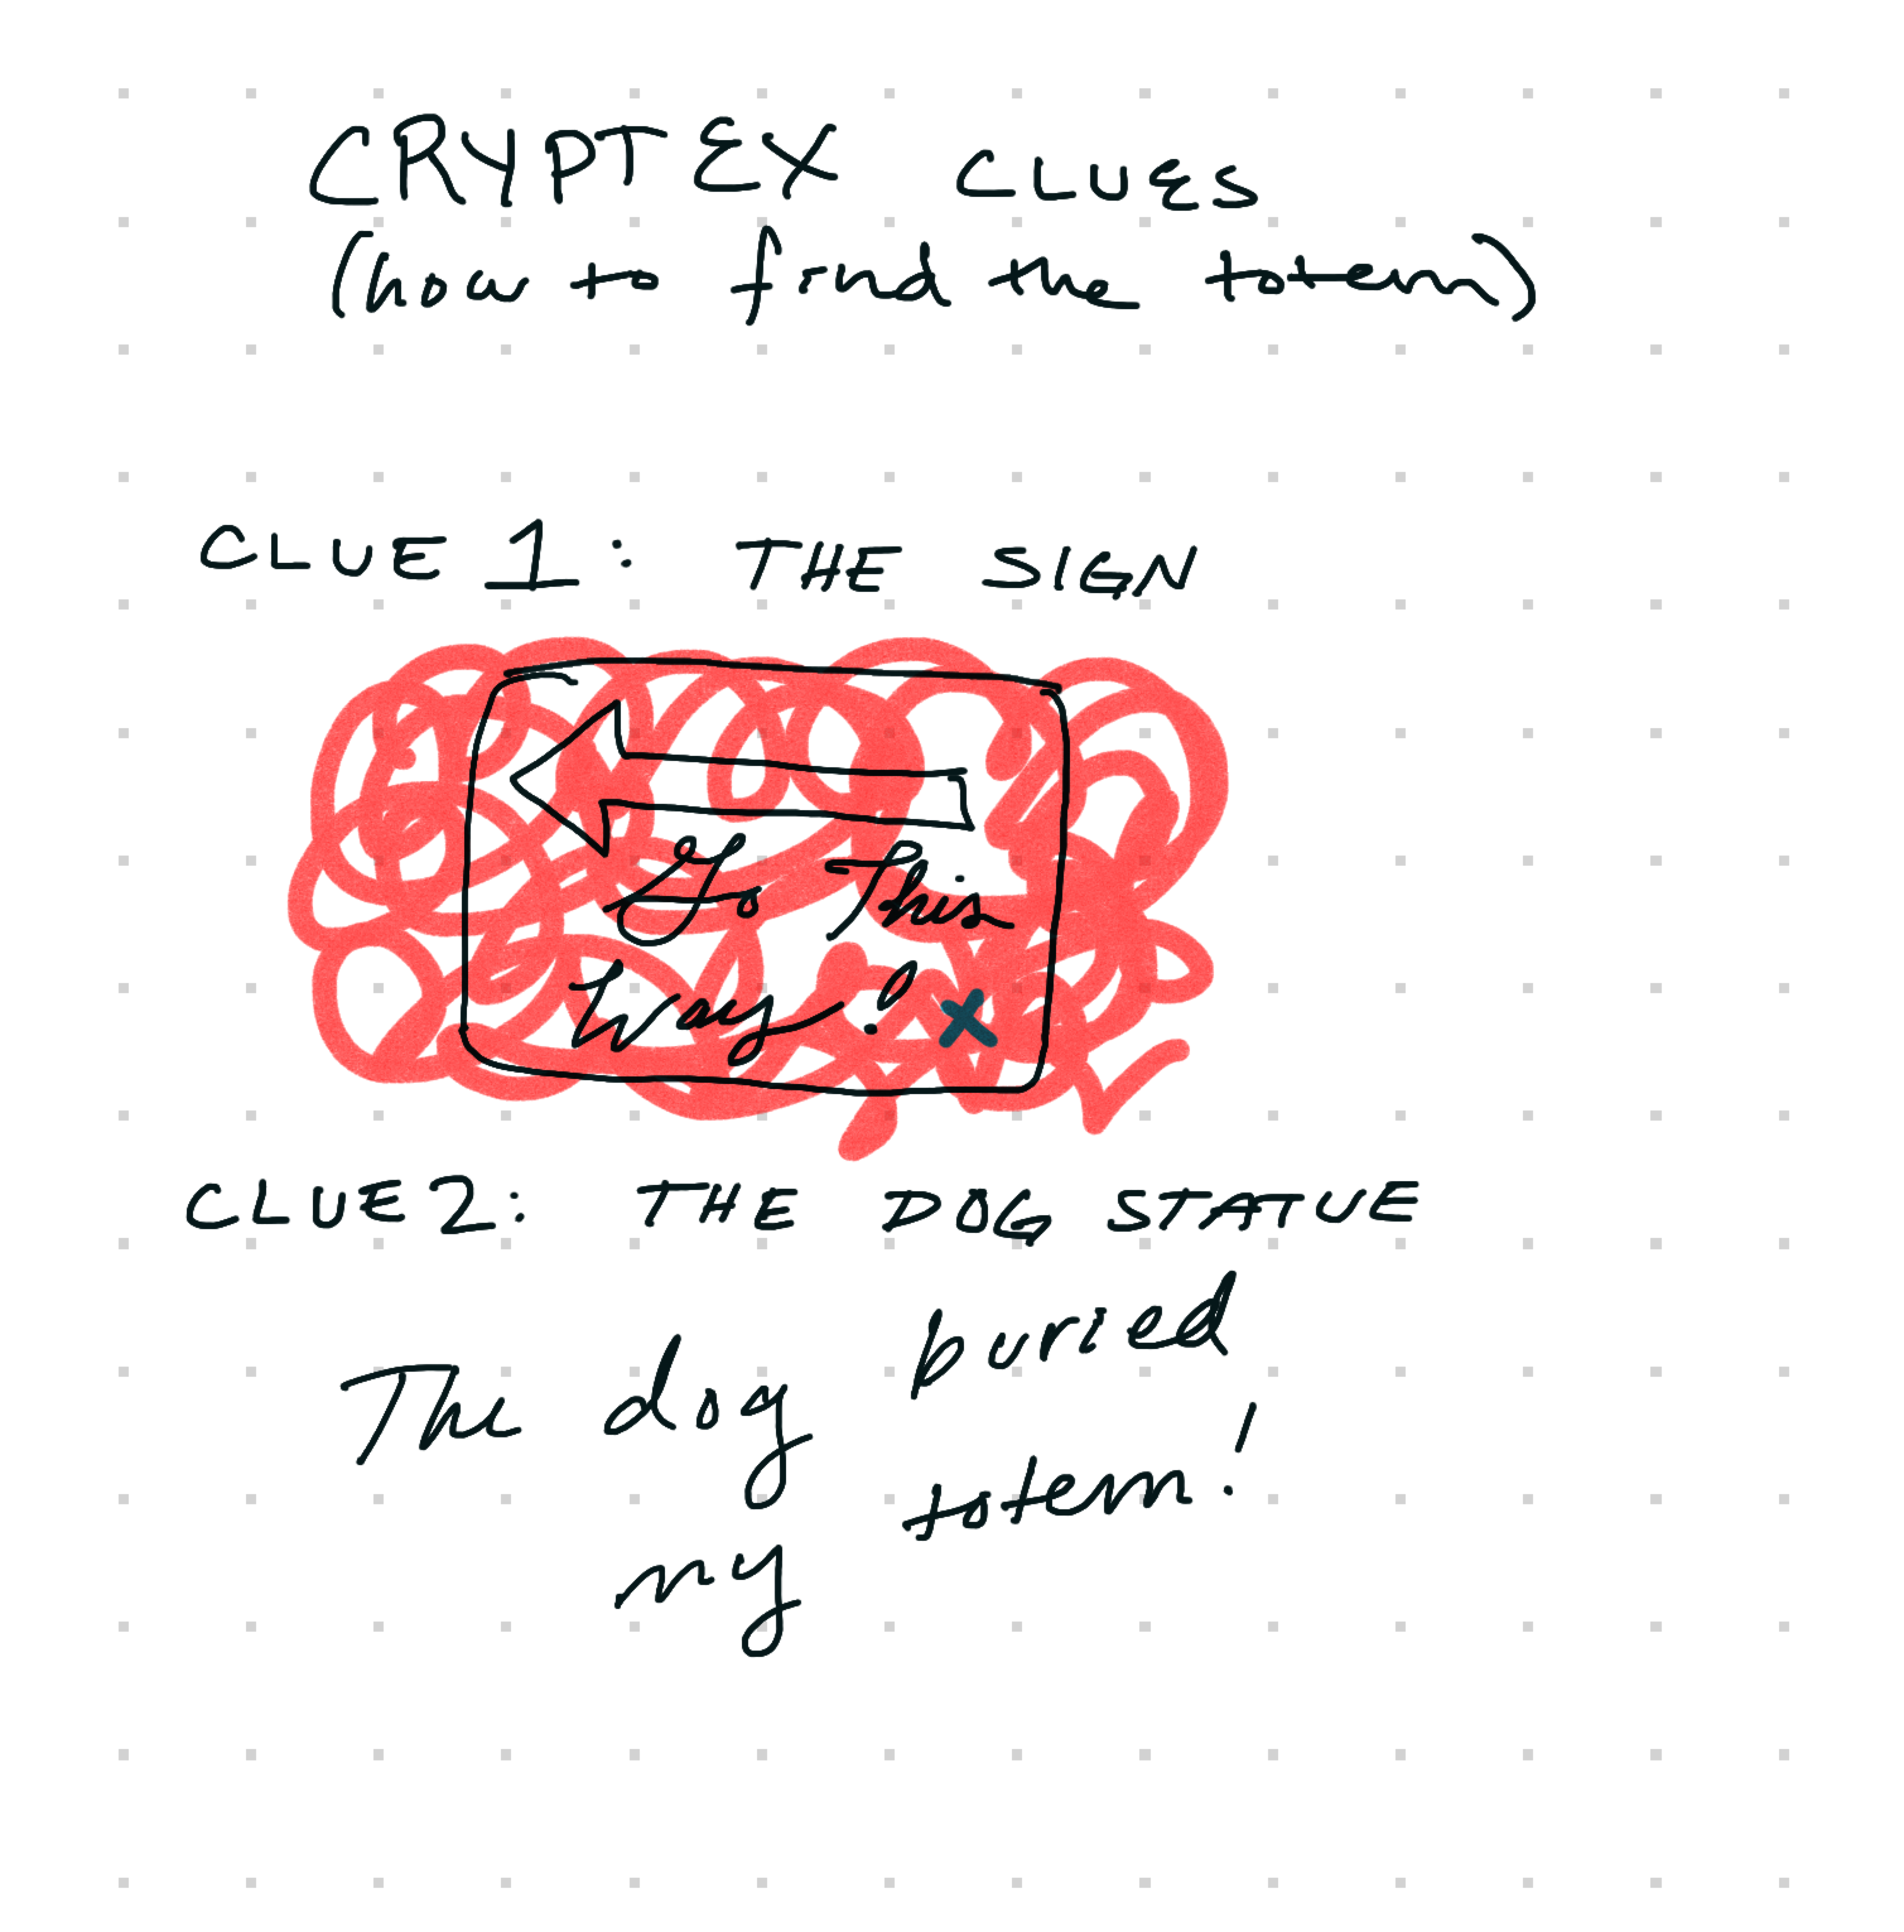 CRYPTEX CLUES
(how to find the totem)
CLUE 1: THE SIGN
Go This
Way!
CLUE 2: THE DOG STATUE
The dog buried
my totem!